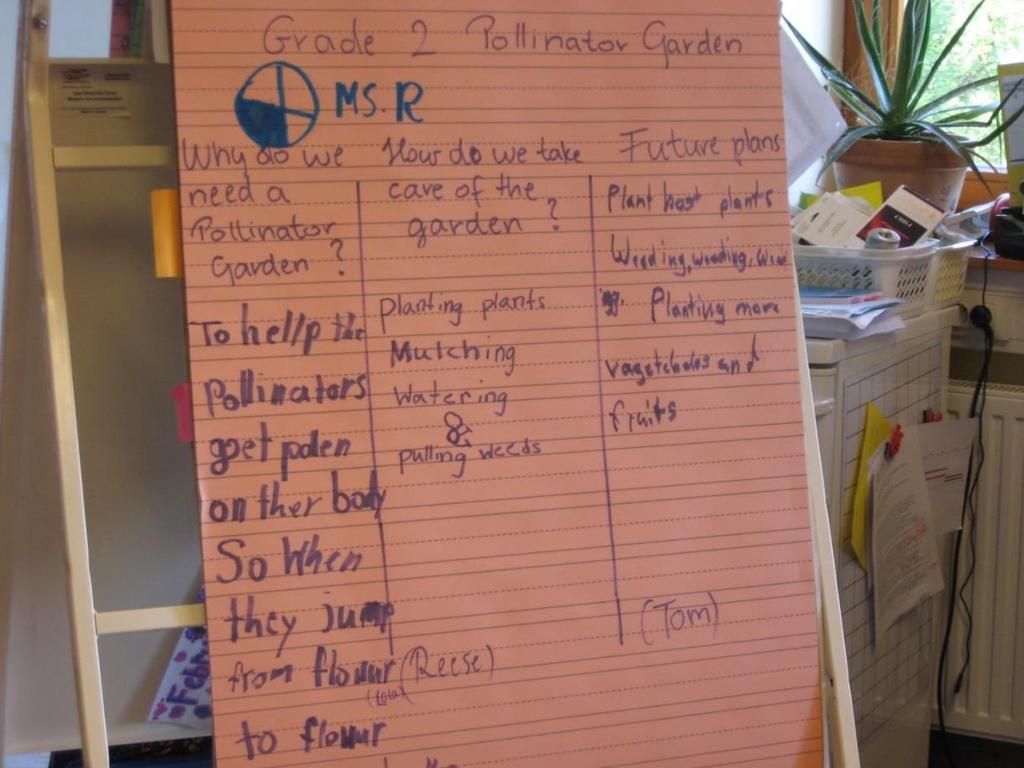 Grade 2 Pollinator Garden
MS. R
Why do we
need a
Pollinator
Garden ?
To hellp the
Pollinators
get polen
on ther body
So When
they jump
from flowur
to flowur
How do we take
care of the
garden ?
Planting plants
Mulching
Watering
&
pulling weeds
(Reese)
Future plans
Plant host plants
Weeding, weeding, weed
ing. Planting more
vagetebales and
fruits
(Tom)